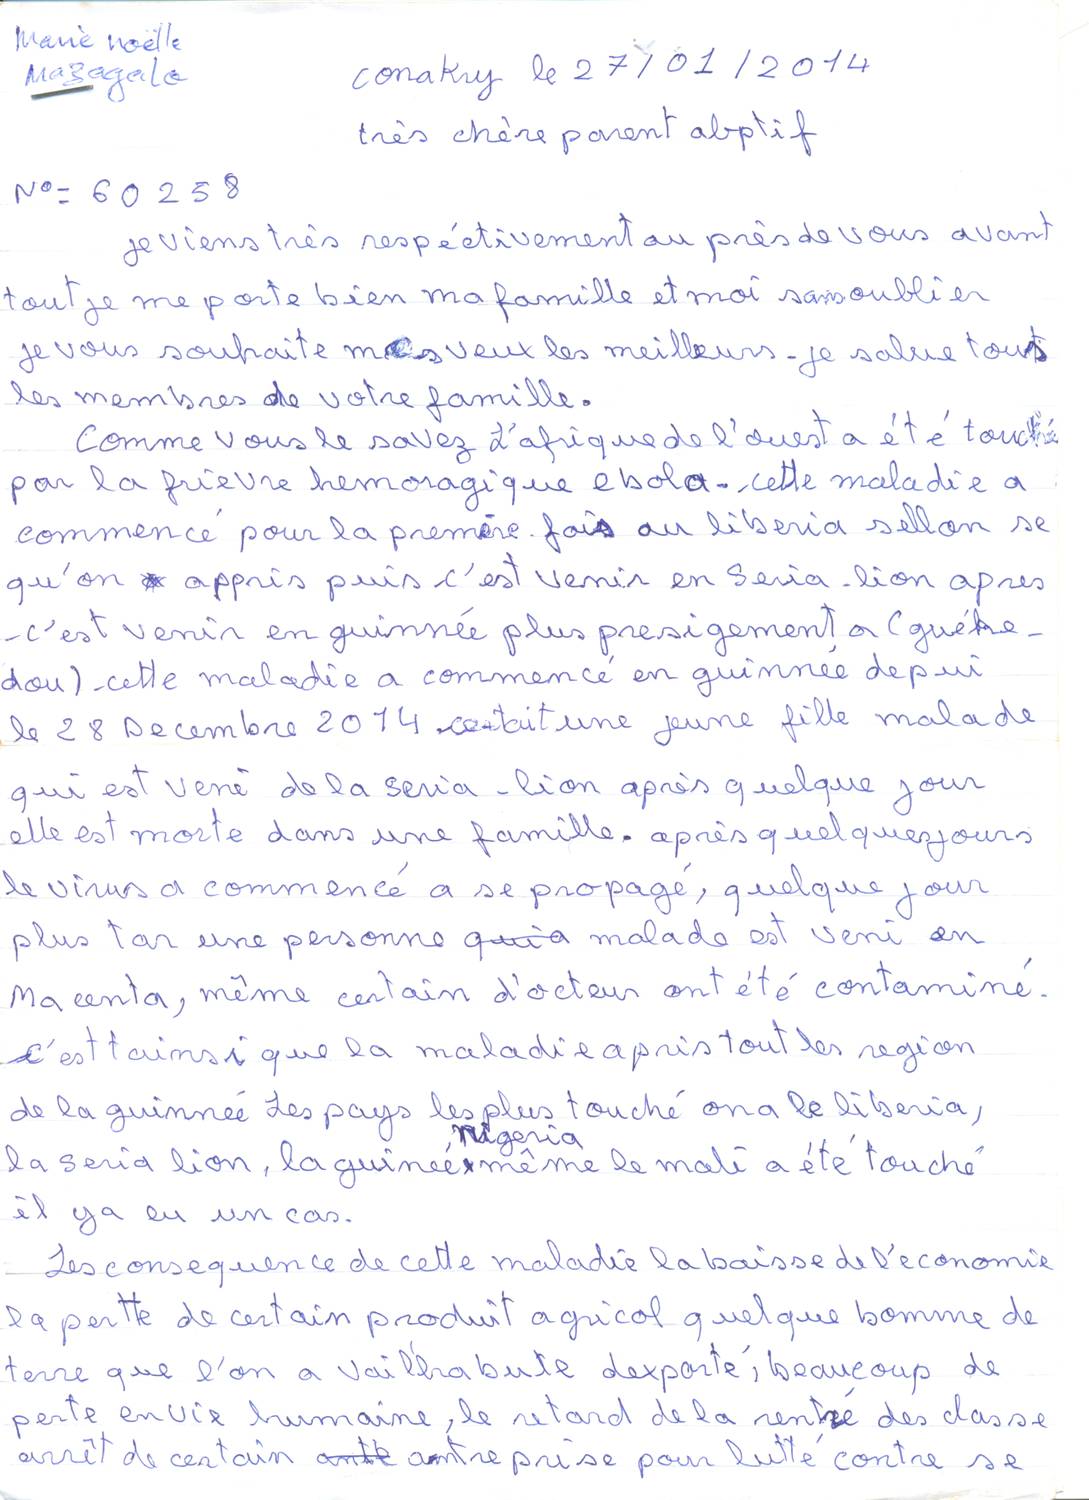 Marie noëlle
Mazagale
conakry le 27/01/2014
très chère parent aboptif
N°= 60258
je viens très respéctivement au près de vous avant
tout je me porte bien ma famille et moi sans oublier
je vous souhaite mes veux les meilleurs - je salue touts
les membres de votre famille.
Comme vous le savez L'afrique de l'ouest a été touché
par la frièvre hemoragique ebola - cette maladie a
commencé pour la première fois au liberia sellon se
qu'on appris puis c'est venir en Seria-lion apres
c'est venir en guinnée plus presigement a (guéke-
dou) cette maladie a commencé en guinnée depui
le 28 Decembre 2014 cetait une jeune fille malade
qui est vene de la seria-lion après quelque jour
elle est morte dans une famille. après quelques jours
le virus a commencé a se propagé, quelque jour
plus tar une personne quia malade est veni en
Macenta, même certain d'octeur ont été contaminé.
c'est tainsi que la maladie apris tout les region
de la guinneé Les pays les plus touché on a le liberia,
la seria lion, la guineé, nigeria même le mali a été touché
il ya eu un cas.
Les consequence de cette maladie la baisse de l'economie
la pertte de certain produit agricol quelque bomme de
terre que l'on a vait l'habute dexporté, beaucoup de
perte en vie humaine, le retard de la rentré des classe
arrêt de certain antreprise pour lutté contre se